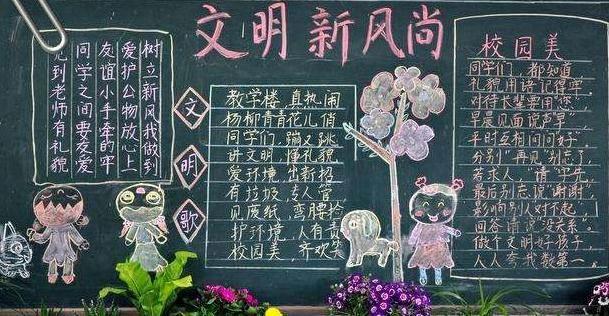 文明新风尚
树立新风我做到
爱护公物放心上
友谊小手牵的牢
同学之间要友爱
见到老师有礼貌
文明歌
教学楼,真热闹
杨柳青青花儿俏
同学们,蹦又跳
讲文明,懂礼貌
爱环境,出新招
有垃圾,专人管
见废纸,弯腰捡
护环境,人有责
校园美,齐欢笑
校园美
同学们,都知道,
礼貌用语记得牢,
对待长辈要用“您”
早晨见面说声“早”
平时互相问问好,
分别“再见”别忘了,
若求人,“请”字先
最后别忘说“谢谢”,
影响别人对不起,
回答请说没关系。
做个文明好孩子,
人人夸我数第一。